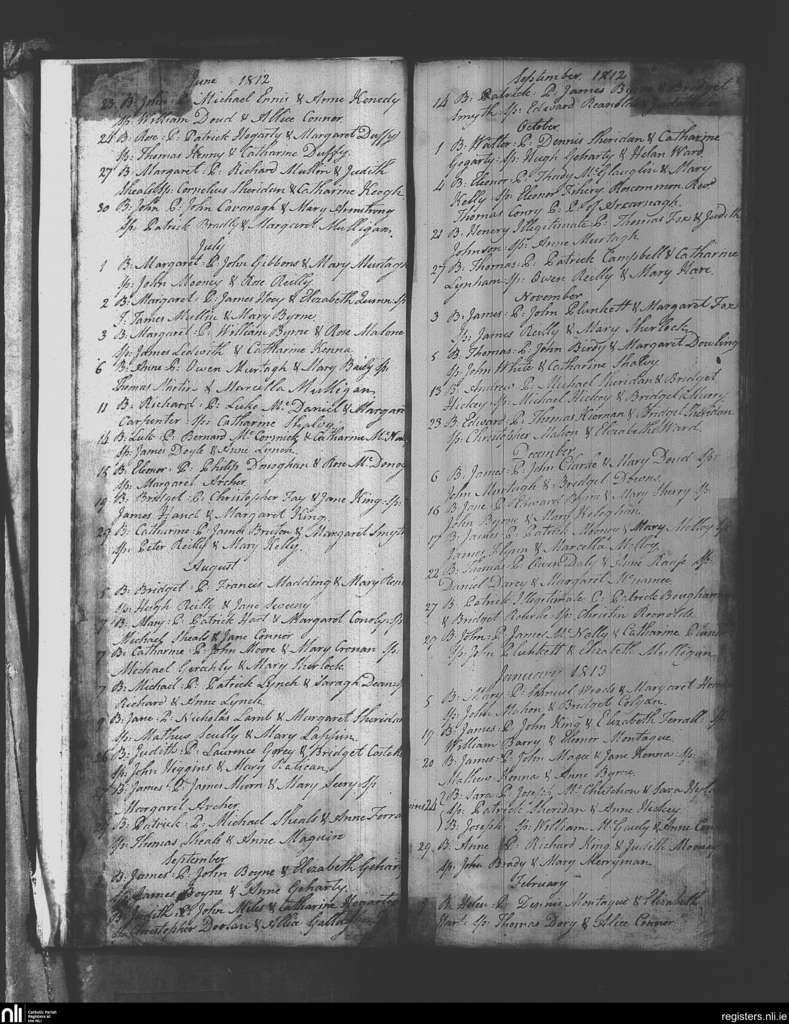 June 1812
23 B. John P. Michael Ennis & Anne Kenedy
Sp. William Doud & Allice Connor
24 B. Rose P. Patrick Hegarty & Margaret Duffy
Sp. Thomas Kenny & Catharine Duffy
27 B. Margaret P. Richard Mullen & Judith
Sheals Sp. Cornelius Sheridan & Catharine Keogh
30 B. John P. John Cavanagh & Mary Armstrong
Sp. Patrick Bradly & Margaret Mulligan
July
1 B. Margaret P. John Gibbons & Mary Murtagh
Sp. John Mooney & Rose Reilly
2 B. Margaret P. James Hoey & Elizabeth Quinn Sp.
James & Mary Byrne
3 B. Margaret P. William Byrne & Rose Malone
Sp. James Ledwith & Catharine Kenna
6 B. Anne P. Owen Murtagh & Mary Baily Sp.
Thomas & Marcella Mulligan
11 B. Richard P. Luke McDaniel & Margaret
Carpenter Sp. Catharine
14 B. Luke P. Bernard McCormick & Catharine
Sp. James Doyle & Anne Lynch
15 B. Elenor P. Philip Donoghan & Rose
Sp. Margaret Archer
19 B. Bridget P. Christopher Fay & Jane King Sp.
James & Margaret King
29 B. Catharine P. James Bruton & Margaret Smyth
Sp. Peter Reilly & Mary Kelly
August
5 B. Bridget P. Frances Madding & Mary
Sp. Hugh Reilly & Jane Sweeny
7 B. Mary P. Patrick Hart & Margaret Conoly Sp.
Michael Sheals & Jane Connor
7 B. Catharine P. John Moore & Mary Cronan Sp.
Michael Geraghty & Mary Sherlock
7 B. Michael P. Patrick Lynch & Saragh
Richard & Anne Lynch
B. Jane P. Nicholas Lamb & Margaret Sheridan
Sp. Mathew Scully & Mary Lappin
26 B. Judith P. Laurence Gorey & Bridget
Sp. John Higgins & Mary
B. James P. James Morn & Mary Seery Sp.
Margaret Archer
B. Patrick P. Michael Sheals & Anne
Sp. Thomas Sheals & Anne Maguire
September
B. James P. John Boyne & Elizabeth
Sp. James Boyne & Anne Geharty
B. Judith P. John Miles & Catharine Hegarty
Christopher Doolan & Allice
September 1812
14 B. Patrick P. James Byrne & Bridget
Smyth Sp. Edward Reanolds
October
1 B. Walter P. Dennis Sheridan & Catharine
Gegarty Sp. Hugh Geharty & Helan Ward
4 B. Elenor P. Thady McGlaughlin & Mary
Kelly Sp. Elenor Roscommon Rev.
Thomas Conry P. P. of
21 B. Henery Illegitimate P. Thomas Fox & Judith
Johnson Sp. Anne Murtagh
27 B. Thomas P. Patrick Campbell & Catharine
Lynham Sp. Owen Reilly & Mary Hare
November
3 B. James P. John Plunkett & Margaret Fox
Sp. James Reilly & Mary Sherlock
5 B. Thomas P. John Birdy & Margaret Dowling
Sp. John White & Catharine
13 B. Andrew P. Michael Sheridan & Bridget
Hickey Sp. Michael Hickey & Bridget
23 B. Edward P. Thomas Kiernan & Bridget Sheridan
Sp. Christopher Mahon & Elizabeth Ward
December
6 B. James P. John Clarke & Mary Doud Sp.
John Murtagh & Bridget Downs
16 B. Jane P. Edward Byrne & Mary Sp.
John Byrne & Mary
17 B. James P. Patrick & Mary Molloy Sp.
James Flynn & Marcella Molloy
22 B. Thomas P. Owen Daly & Anne Keefe Sp.
Daniel Darcy & Margaret
27 B. Patrick Illegitimate P. Patrick
& Bridget Sp. Christin Reonolds
29 B. John P. James McNally & Catharine
Sp. John Plubkett & Elizabeth Mulligan
January 1813
5 B. Mary P. Woods & Margaret
Sp. John Mahon & Bridget Colgan
19 B. James P. John King & Elizabeth Farrall Sp.
William Barry & Elenor Montague
20 B. James P. John Magee & Jane Kenna Sp.
Mathew Kenna & Anne Byrne
24 B. Sara P. Joseph & Sara
Sp. Patrick Sheridan & Anne Hickey
B. Joseph Sp. William & Anne
29 B. Anne P. Richard King & Judith
Sp. John Brady & Mary Merryman
February
B. Helen P. Dennis Montague & Elizabeth
Sp. Thomas Dory & Alice Connor
nli
Catholic Parish
Registers at
the NLI
registers.nli.ie